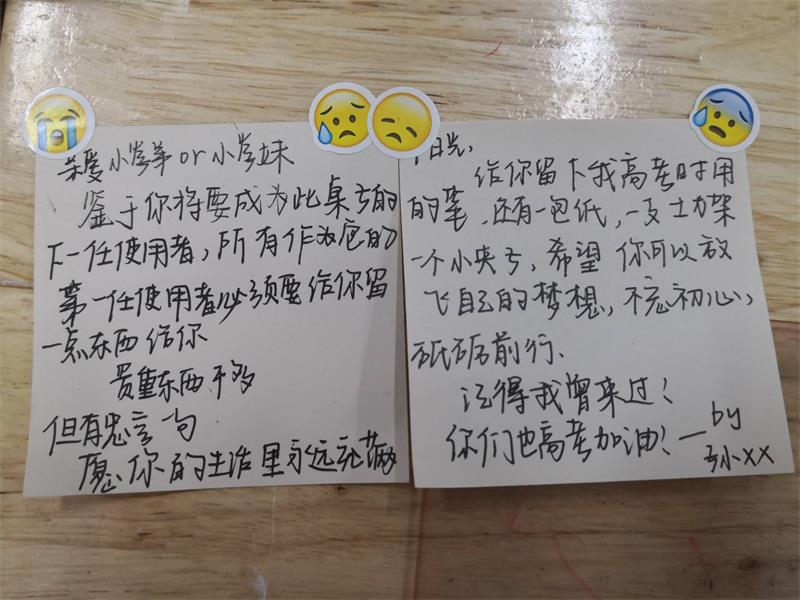 亲爱小学弟or小学妹
鉴于你将要成为此桌子的
下一任使用者,所有作为它的
第一任使用者必须要给你留
一点东西给你
贵重东西不多
但有忠言一句
愿你的生活里永远充满
阳光,
给你留下我高考时用
的笔,还有一包纸,一支士力架
一个小夹子,希望你可以放
飞自己的梦想,不忘初心,
砥砺前行.
记得我曾来过!
你们也高考加油!—by
孙XX